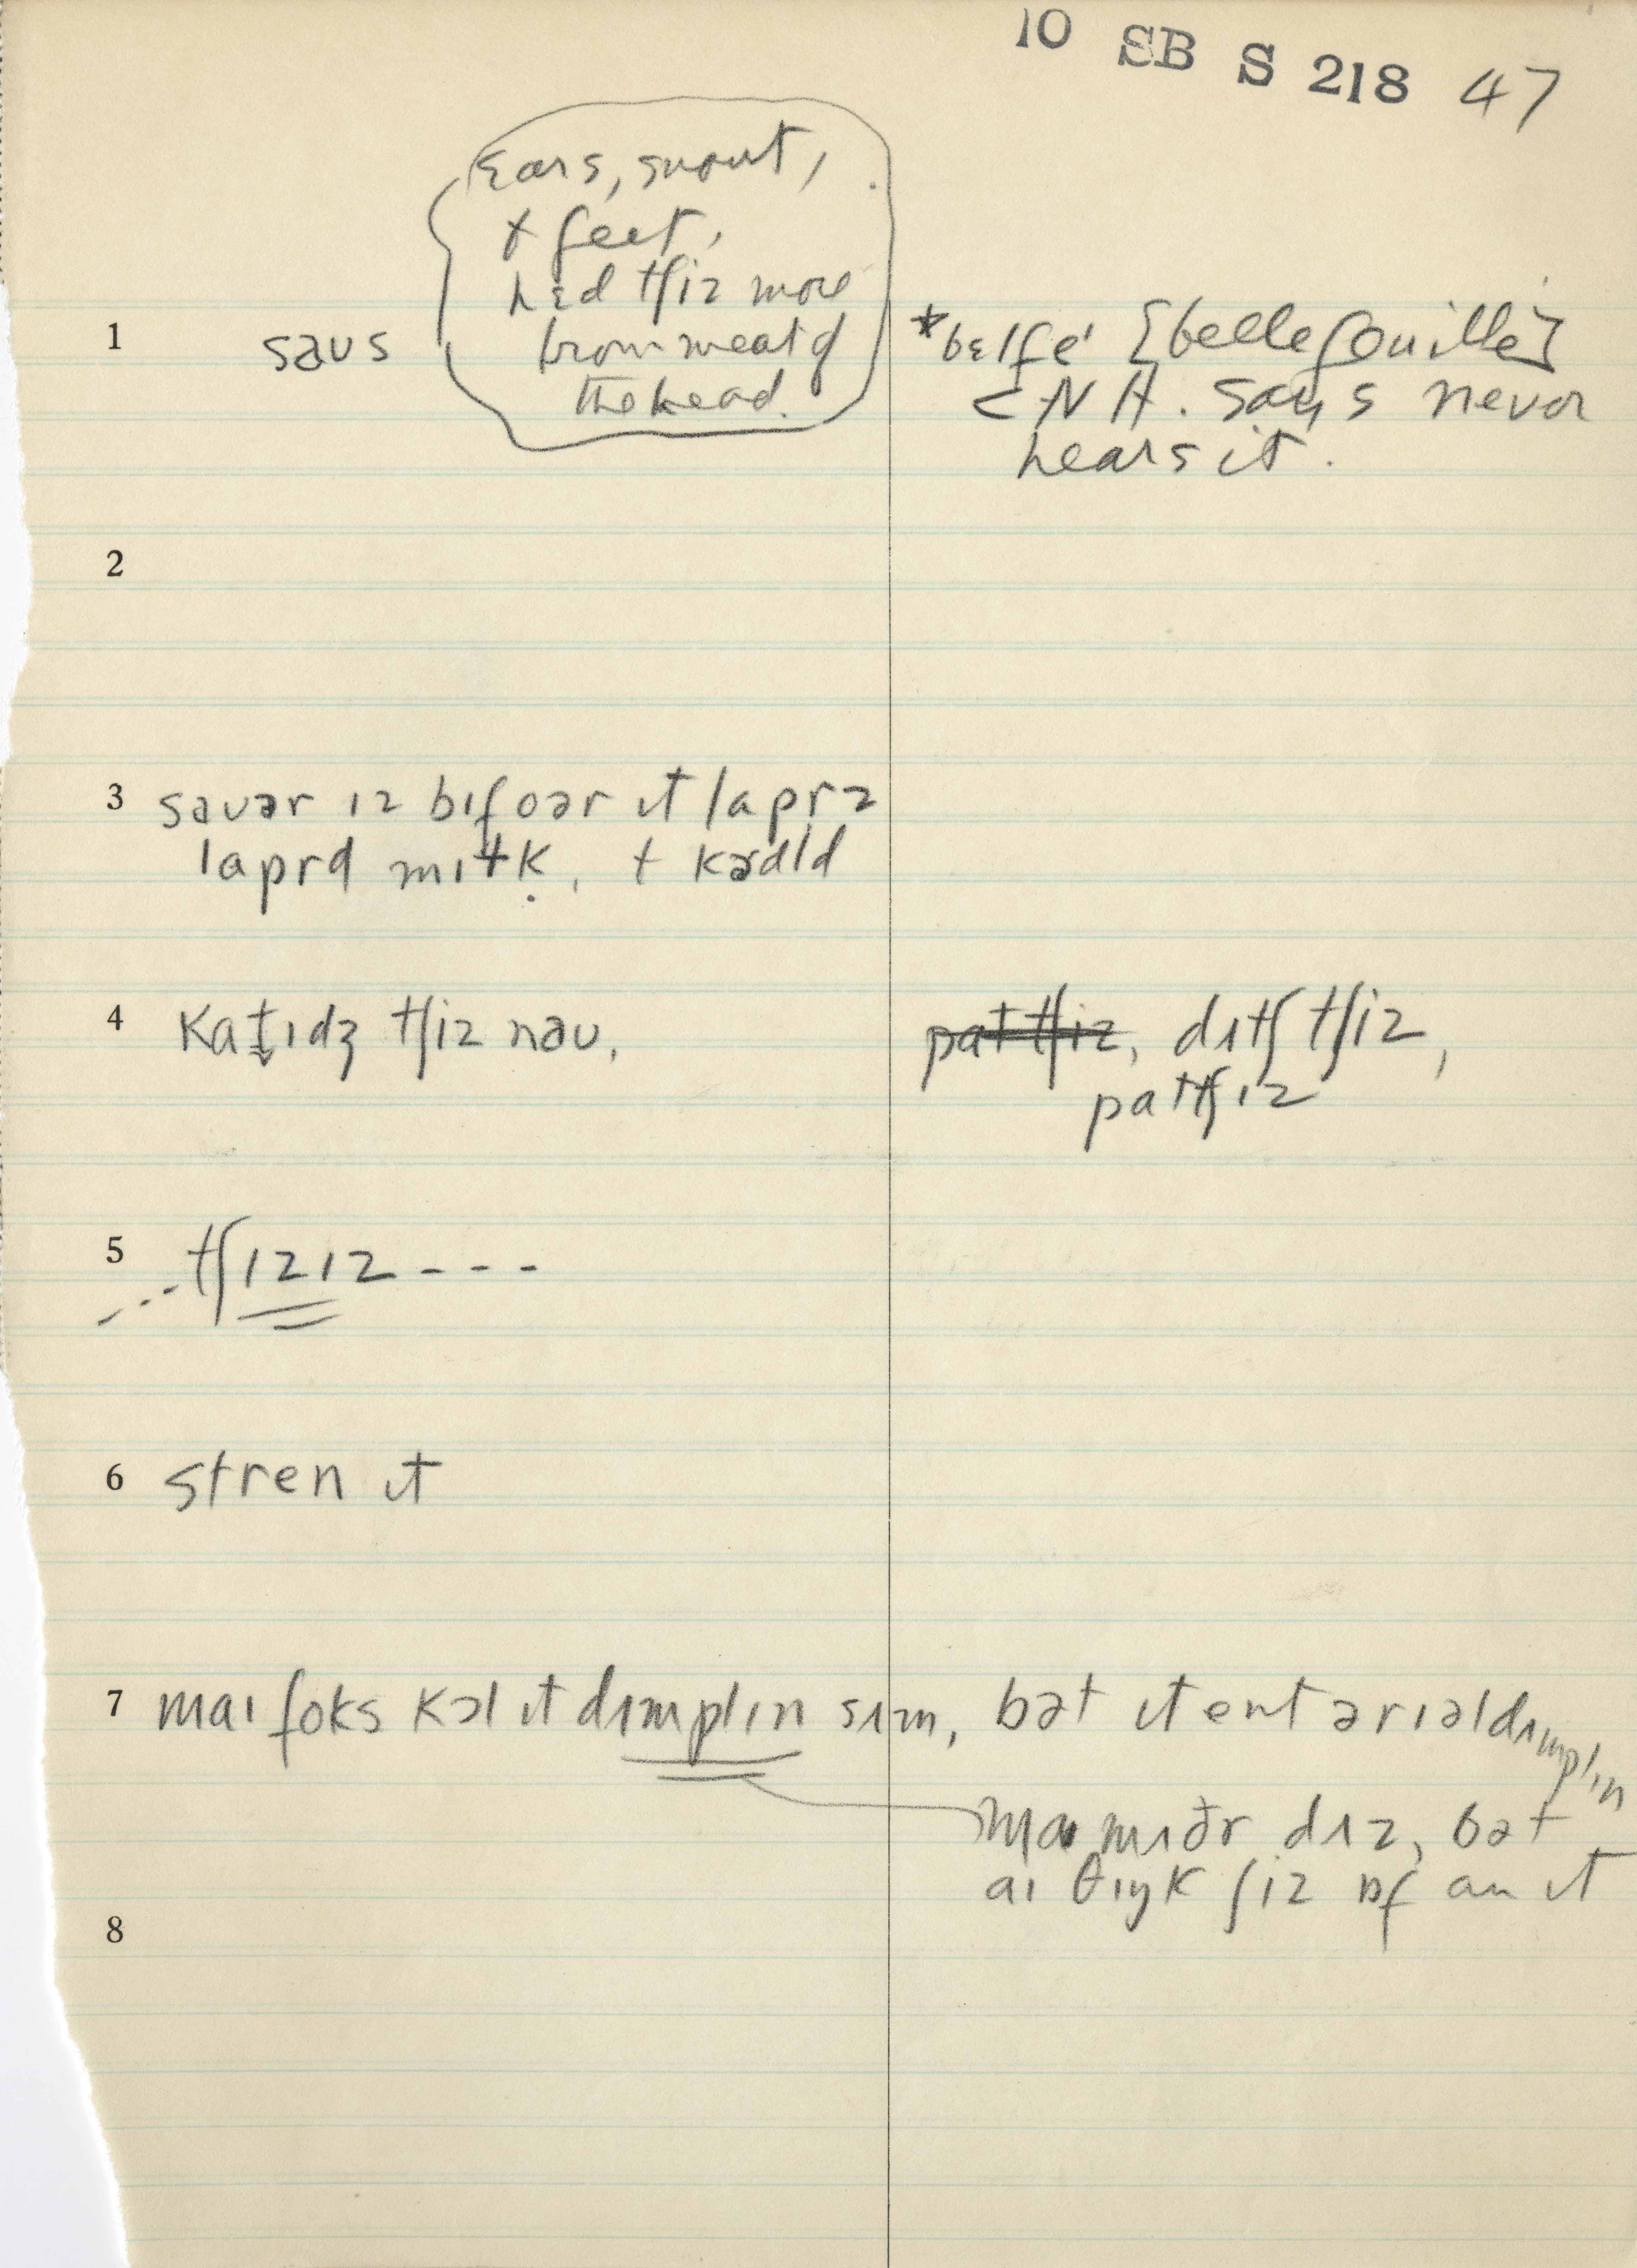 10 SB S 218 47
Ears, snout,
+ feet,
hɛd tʃiz more
from meat of
the head.
1 saʊs
*bɛlfe' [bellefouille]
< N H. says never
hears it.
2
3 saʊər ɪz bɪfoər ɪt lapr z
laprd mɪɫk, + kɚdld
4 kat̬ɪdʒ tʃiz naʊ,
pattʃiz, dʌtʃ tʃiz,
pattʃɪz
5 ...tʃɪzɪz - - -
6 stren ɪt
7 maɪ foks kɔl ɪt dɪmplɪn sɪm, bət ɪt ent ə rɪəl dɪmplɪn
mɪðr dɪz, bət
aɪ θɪŋk ʃiz ɒf an ɪt
8